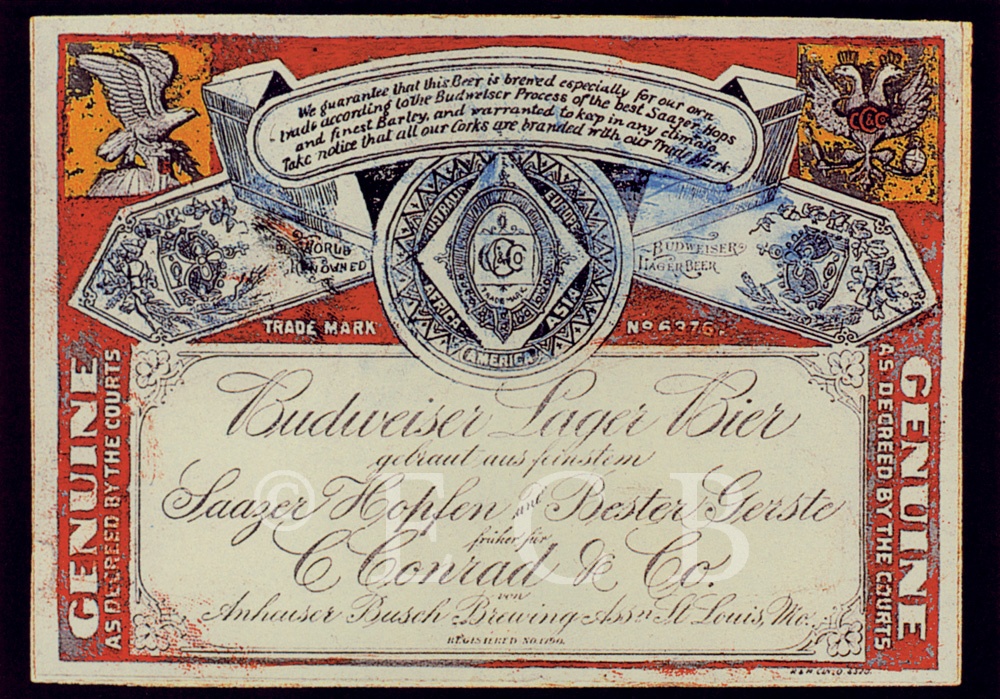 We guarantee that this Beer is brewed especially for our own
trade according to the Budweiser Process of the best Saazer Hops
and finest Barley, and warranted to keep in any climate
Take notice that all our Corks are branded with our Trade Mark
CC&Co
AUSTRALIA
EUROPE
AFRICA
ASIA
AMERICA
CC&Co
TRADE MARK
WORLD
RENOWNED
BUDWEISER
LAGER BEER
TRADE MARK
No 6376.
GENUINE
AS DECREED BY THE COURTS
GENUINE
AS DECREED BY THE COURTS
Budweiser Lager Bier
gebraut aus feinstem
Saazer Hopfen und Bester Gerste
früher für
C Conrad & Co.
von
Anheuser Busch Brewing Ass'n St Louis, Mo.
REGISTERED NO.
© ECB